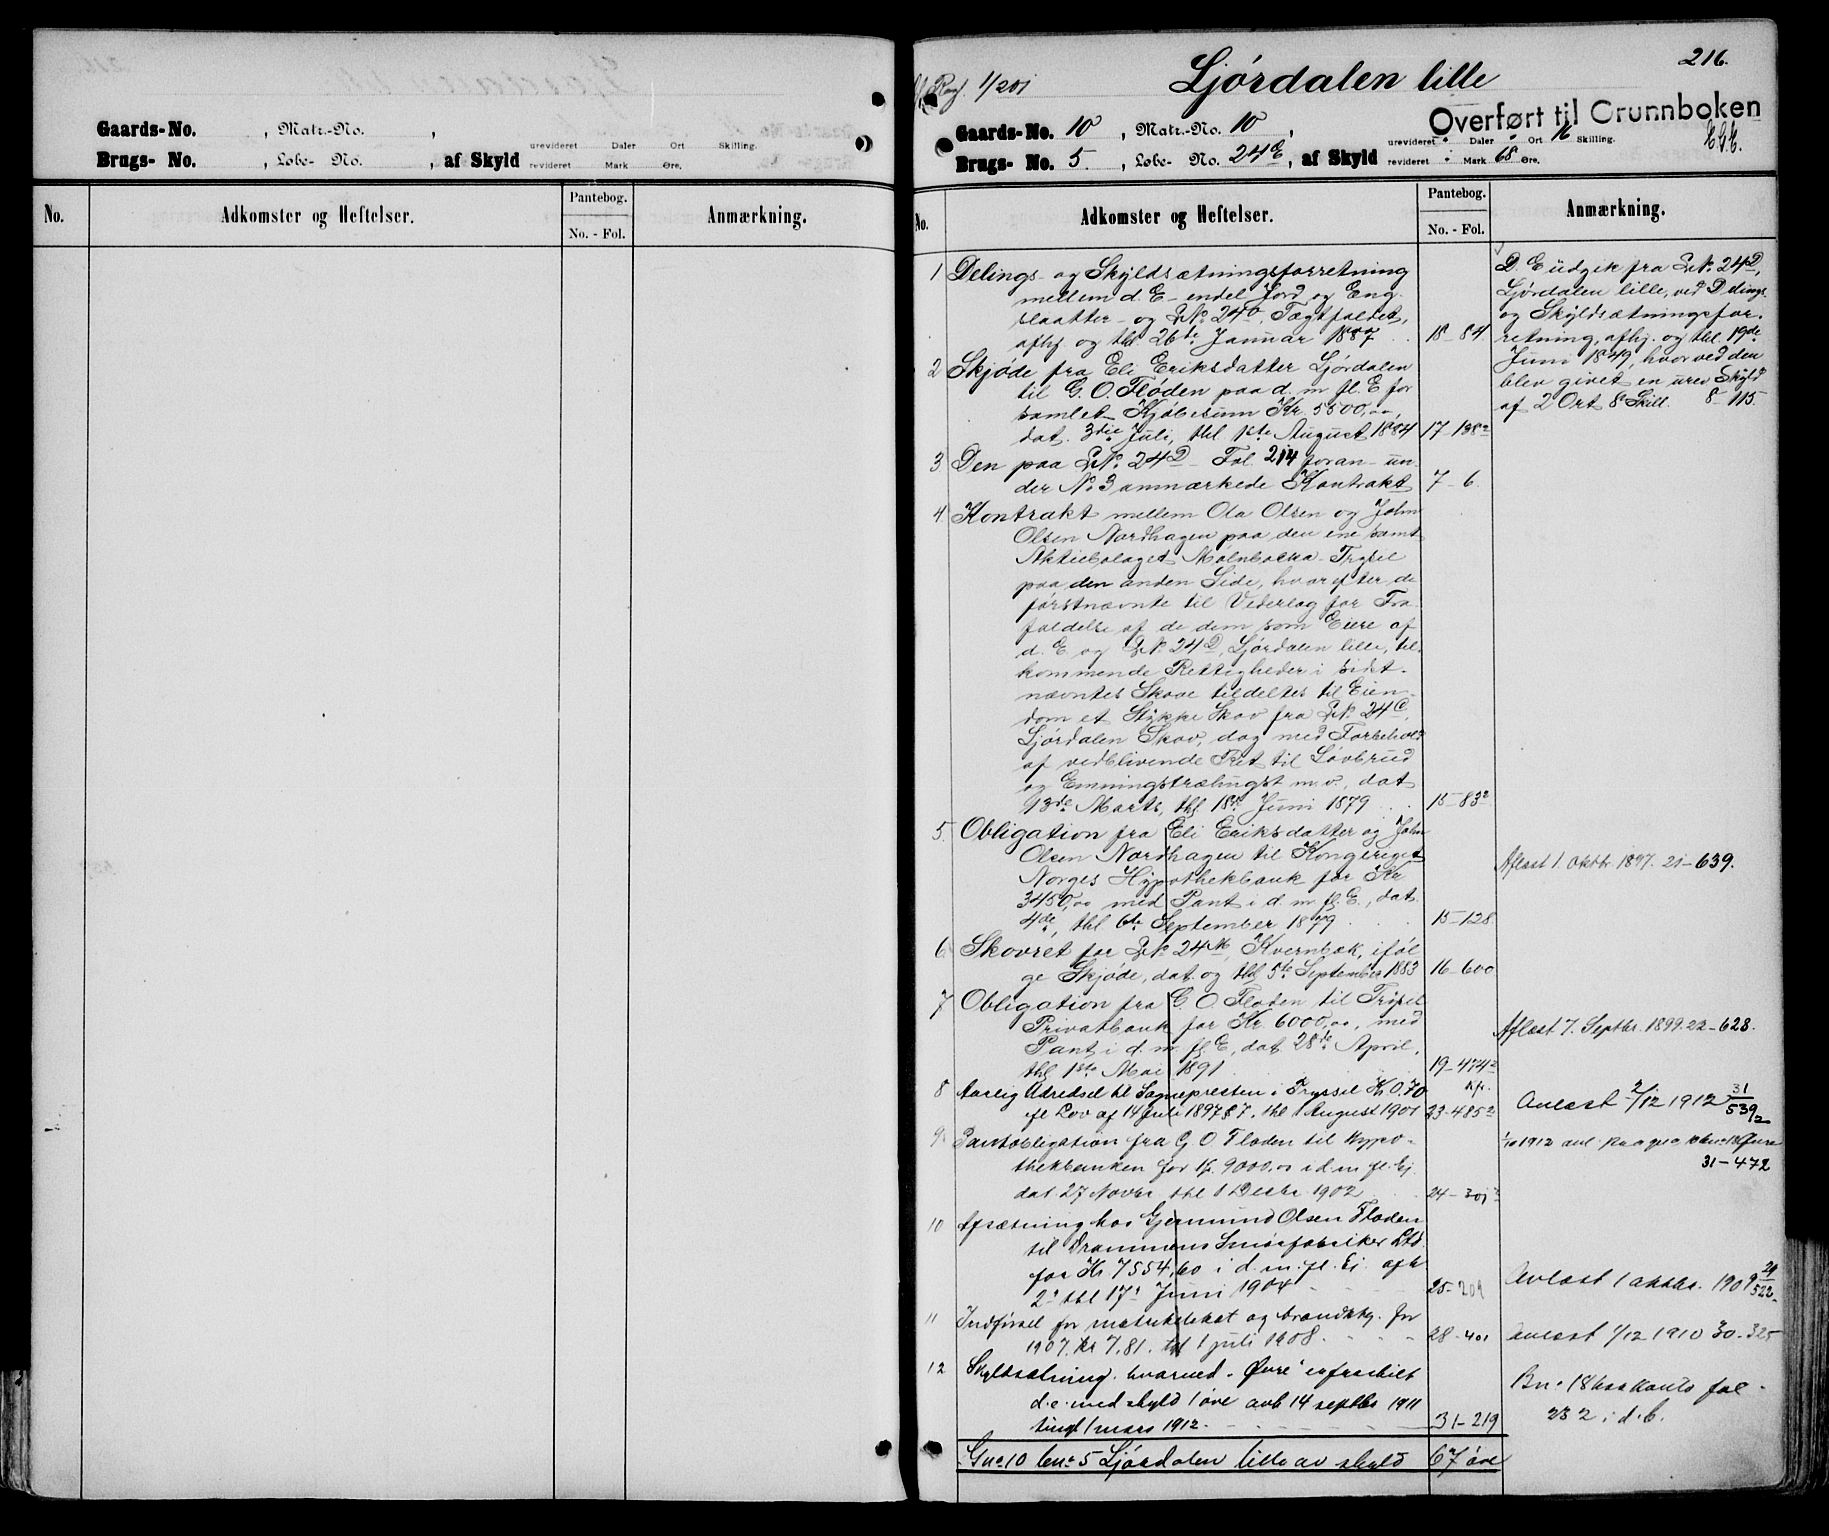 Gaards-No. , Matr.-No. ,
Brugs- No. , Løbe- No. , af Skyld urevideret Daler Ort Skilling.
revideret Mark Øre.
No. Adkomster og Heftelser. Pantebog. No. - Fol. Anmærkning.
216.
Reg. 1/201 Ljørdalen lille
Overført til Grunnboken
Gaards-No. 10, Matr.-No. 10,
Brugs- No. 5, Løbe- No. 24E, af Skyld urevideret " Daler " Ort 16 Skilling.
revideret " Mark 68 Øre.
No. Adkomster og Heftelser. Pantebog. No. - Fol. Anmærkning.
1 Delings- og Skyldsætningsforretning
mellem d. E - endel Jord og Eng-
slaatter - og LNo 24o, Tægtfaldet,
afhj og thl 26de Januar 1887 18-84
2 Skjøde fra Eli Eriksdatter Ljørdalen
til G. O. Fløden paa d. m. fl. E for
samlet Kjøbesum Kr. 5500,00,
dat. 3die Juli, thl 1ste August 1884 17-138²
3 Den paa LNo 24D Fol. 214 foran un-
der No 3 anmærkede Kontrakt 7-6
4 Kontrakt mellem Ola Olsen og John
Olsen Nordhagen paa den ene samt
Aktiebolaget Mølnbacka-Trysil
paa den anden Side, hvorefter de
førstnævnte til Vederlag for Fra-
faldelse af de dem som Eiere af
d. E og LNo 24D, Ljørdalen lille, til-
kommende Rettigheder i sidst-
nævntes Skove tildeltes til Eien-
dom et Stykke Skov fra LNo 24C,
Ljørdalen Skov, dog med Forbehold
af vedblivende Ret til Løvbrud
og m.v., dat
13de Marts, thl 18de Juni 1879 15-83²
5. Obligation fra Eli Eriksdatter og John
Olsen Nordhagen til Kongeriget
Norges Hypothekbank for Kr
3450,00 med Pant i d. m. fl. E., dat.
4de, thl 6te September 1879 15-128
6. Skovret for LNo 24M, Kvernbæk, iføl-
ge Skjøde, dat. og thl 5te September 1883 16-600
7 Obligation fra G. O Fløden til Trysil
Privatbank for Kr. 6000,00, med
Pant i d. m. fl E, dat 28de April,
thl 1ste Mai 1891 19-474²
8 Aarlig Udredsel til Sognepresten i Trysil Kr 0.70
efl Lov af 14 Juli 1897 § 7. thl 1 August 1901 23-485²
9. Pantobligation fra G. O. Fløden til Hypo-
thekbanken for Kr. 9000,00 i d. m fl. Ej.
dat 27 Novbr thl 1 Decbr 1902 24-301²
10 Afsætning hos Gjermund Olsen Fløden
til Drammens Smørfabriker Ltd.
for Kr 7554,60 i d. m. fl. Ej. afh
2' thl 17' Juni 1904 25-209
11 Indførsel for matrikelskat og brandktg. for
1907. Kr 7,81. thl 1 juli 1908. 28-401
12 Skyldsætning hvorved "Øvre" er fraskilt
d. e. med skyld 1 øre avh 14 septbr 1911
tingl 1 mars 1912. 31-219
Gno 10 bno 5 Ljørdalen lille av skyld 67 øre
D. E üdgik fra LNo 24D,
Ljørdalen lille, ved Delings-
og Skyldsætningsfor-
retning, afhj. og thl. 19de
Juni 1849, hvorved den
blev givet en urev Skyld
af 2 Ort 8 Skill. 8-115.
Aflæst 1 oktbr 1897. 21-639.
Aflæst 7. Septbr. 1899. 22-628.
Avlæst 2/12 1912 31/539²
1/10 1912 avl. paa gno 10 bno 18 Øvre
31-472
Avlæst 1 oktbr. 1909 29/522
Avlæst 1/12 1910 30-325
Bno 18 har konto fol.
232 i d. b.